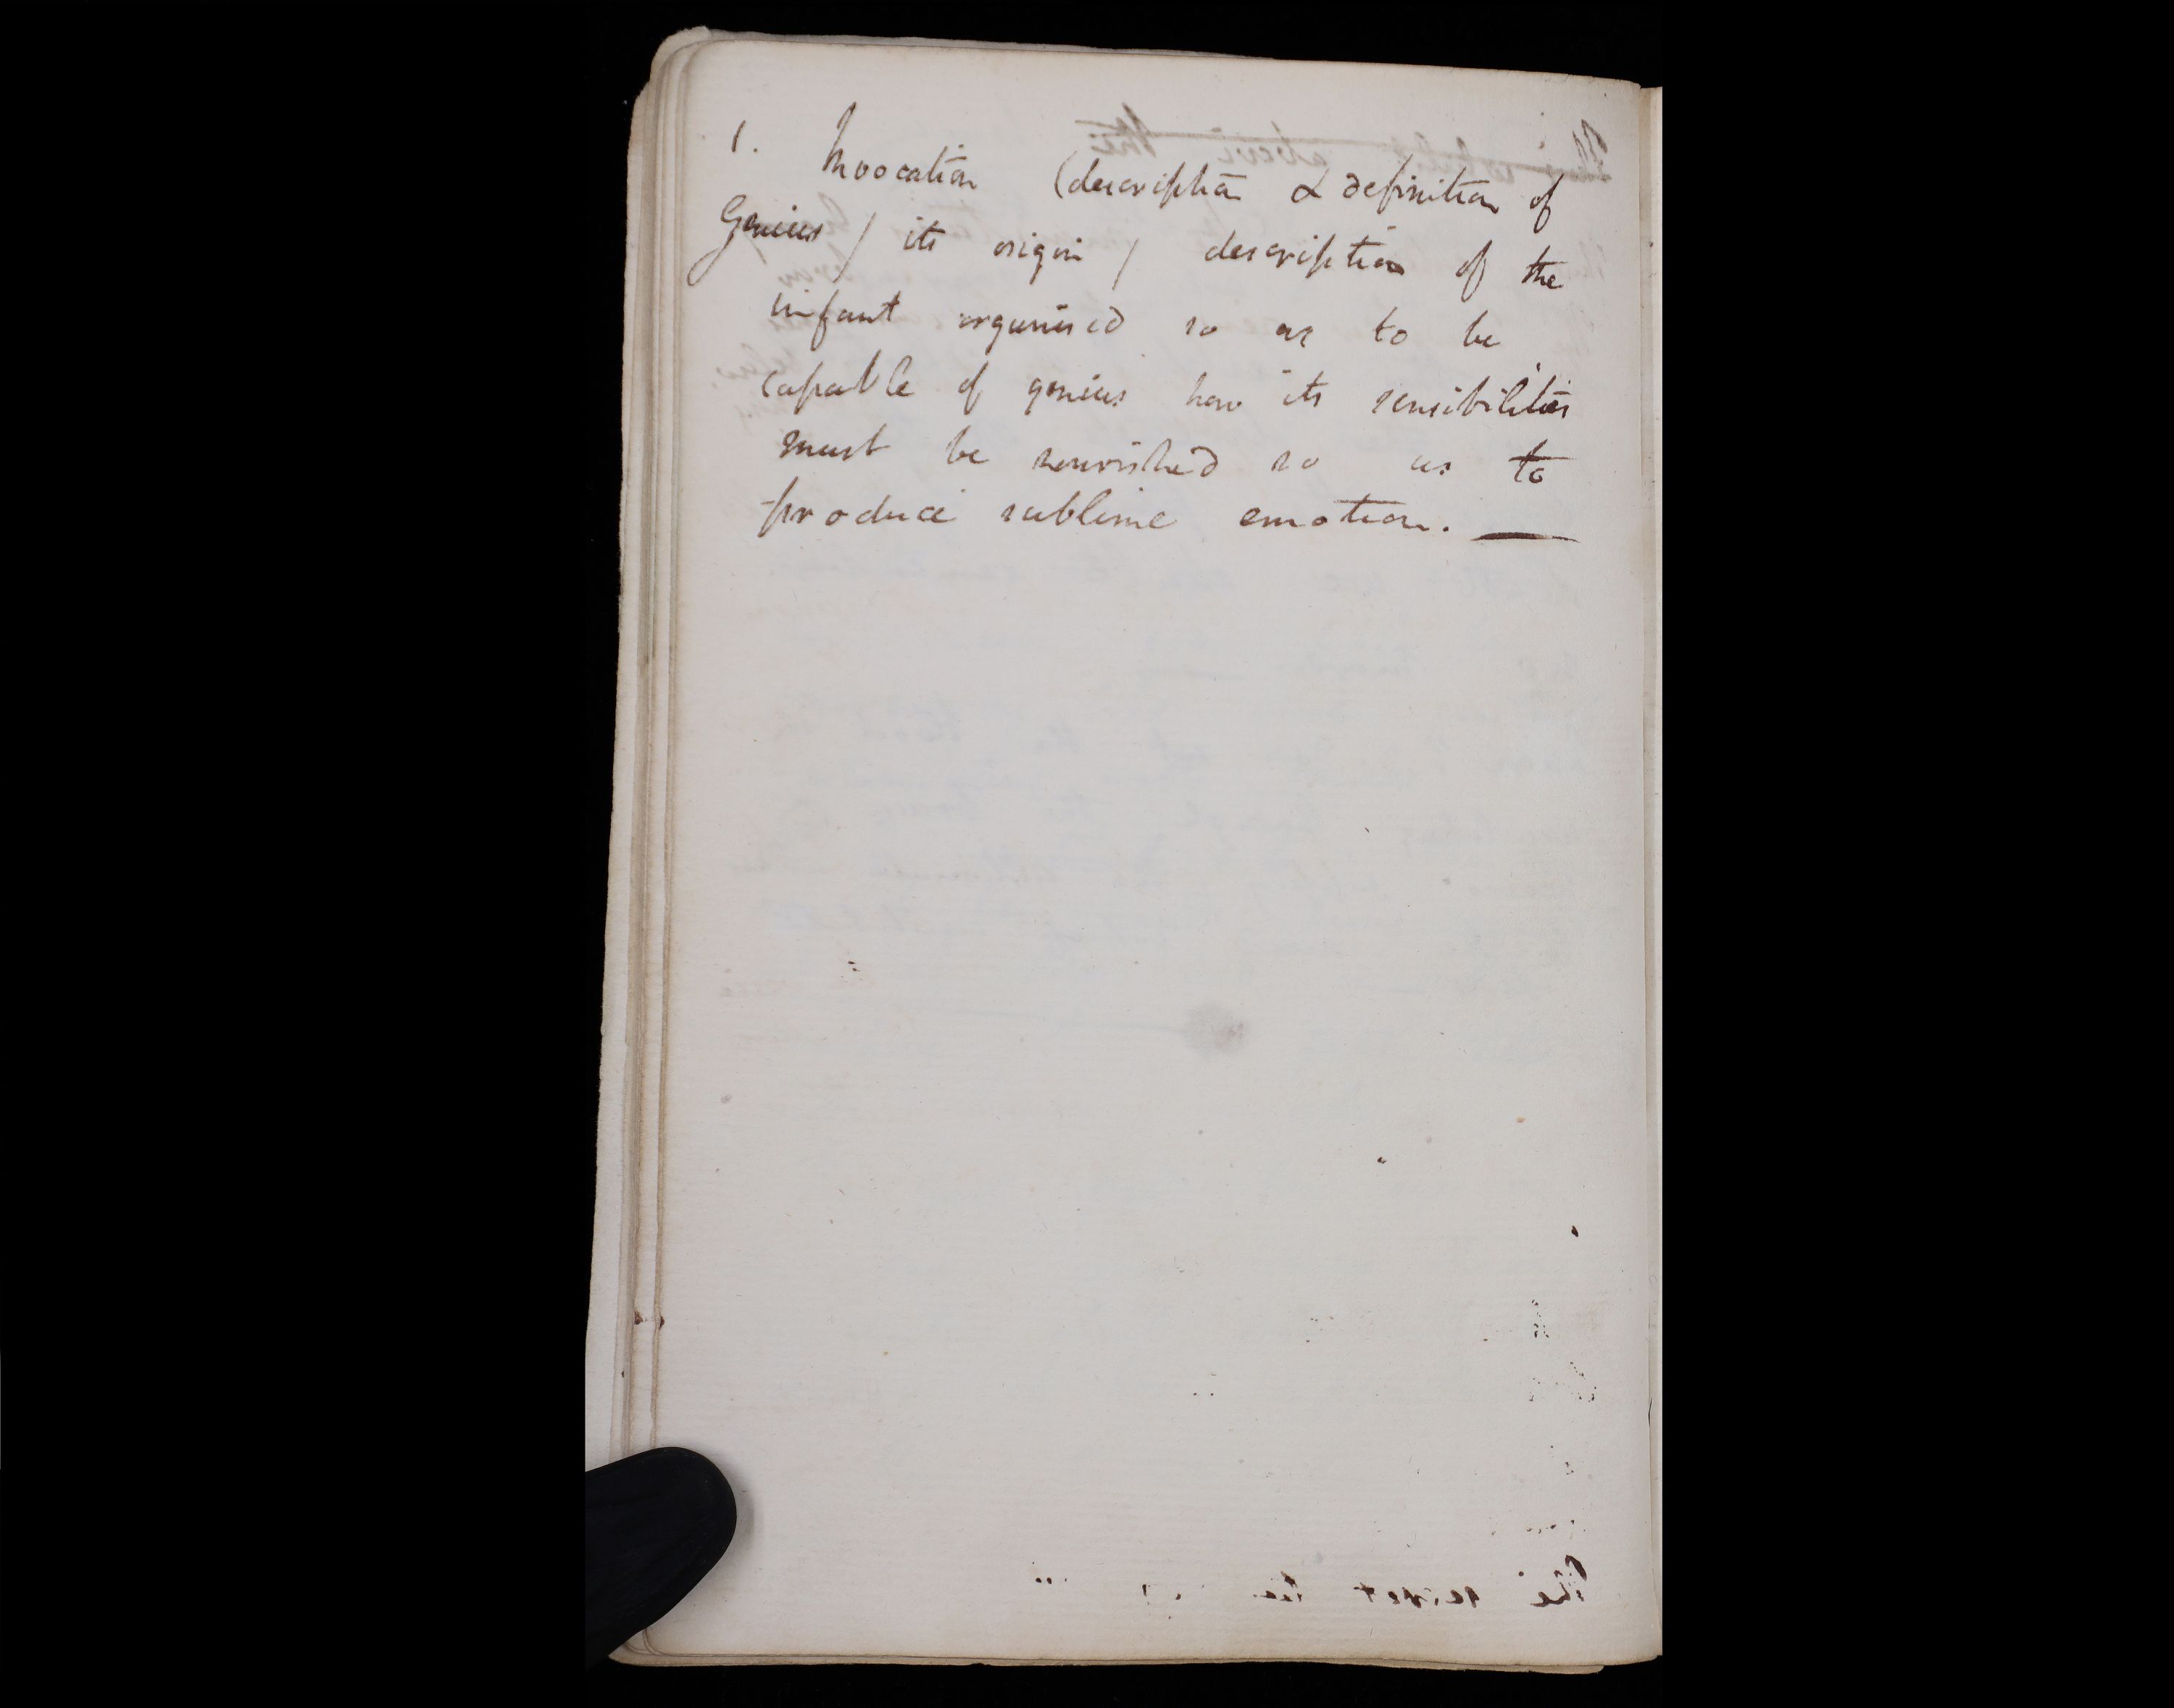 1. Invocation (description & definition of
Genius / its origin / description of the
infant organised so as to be
capable of genius how its sensibilities
must be nourished so as to
produce sublime emotion. —